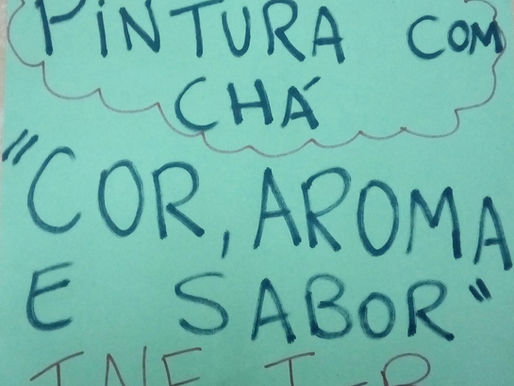 PINTURA COM
CHÁ
"COR, AROMA
E SABOR"